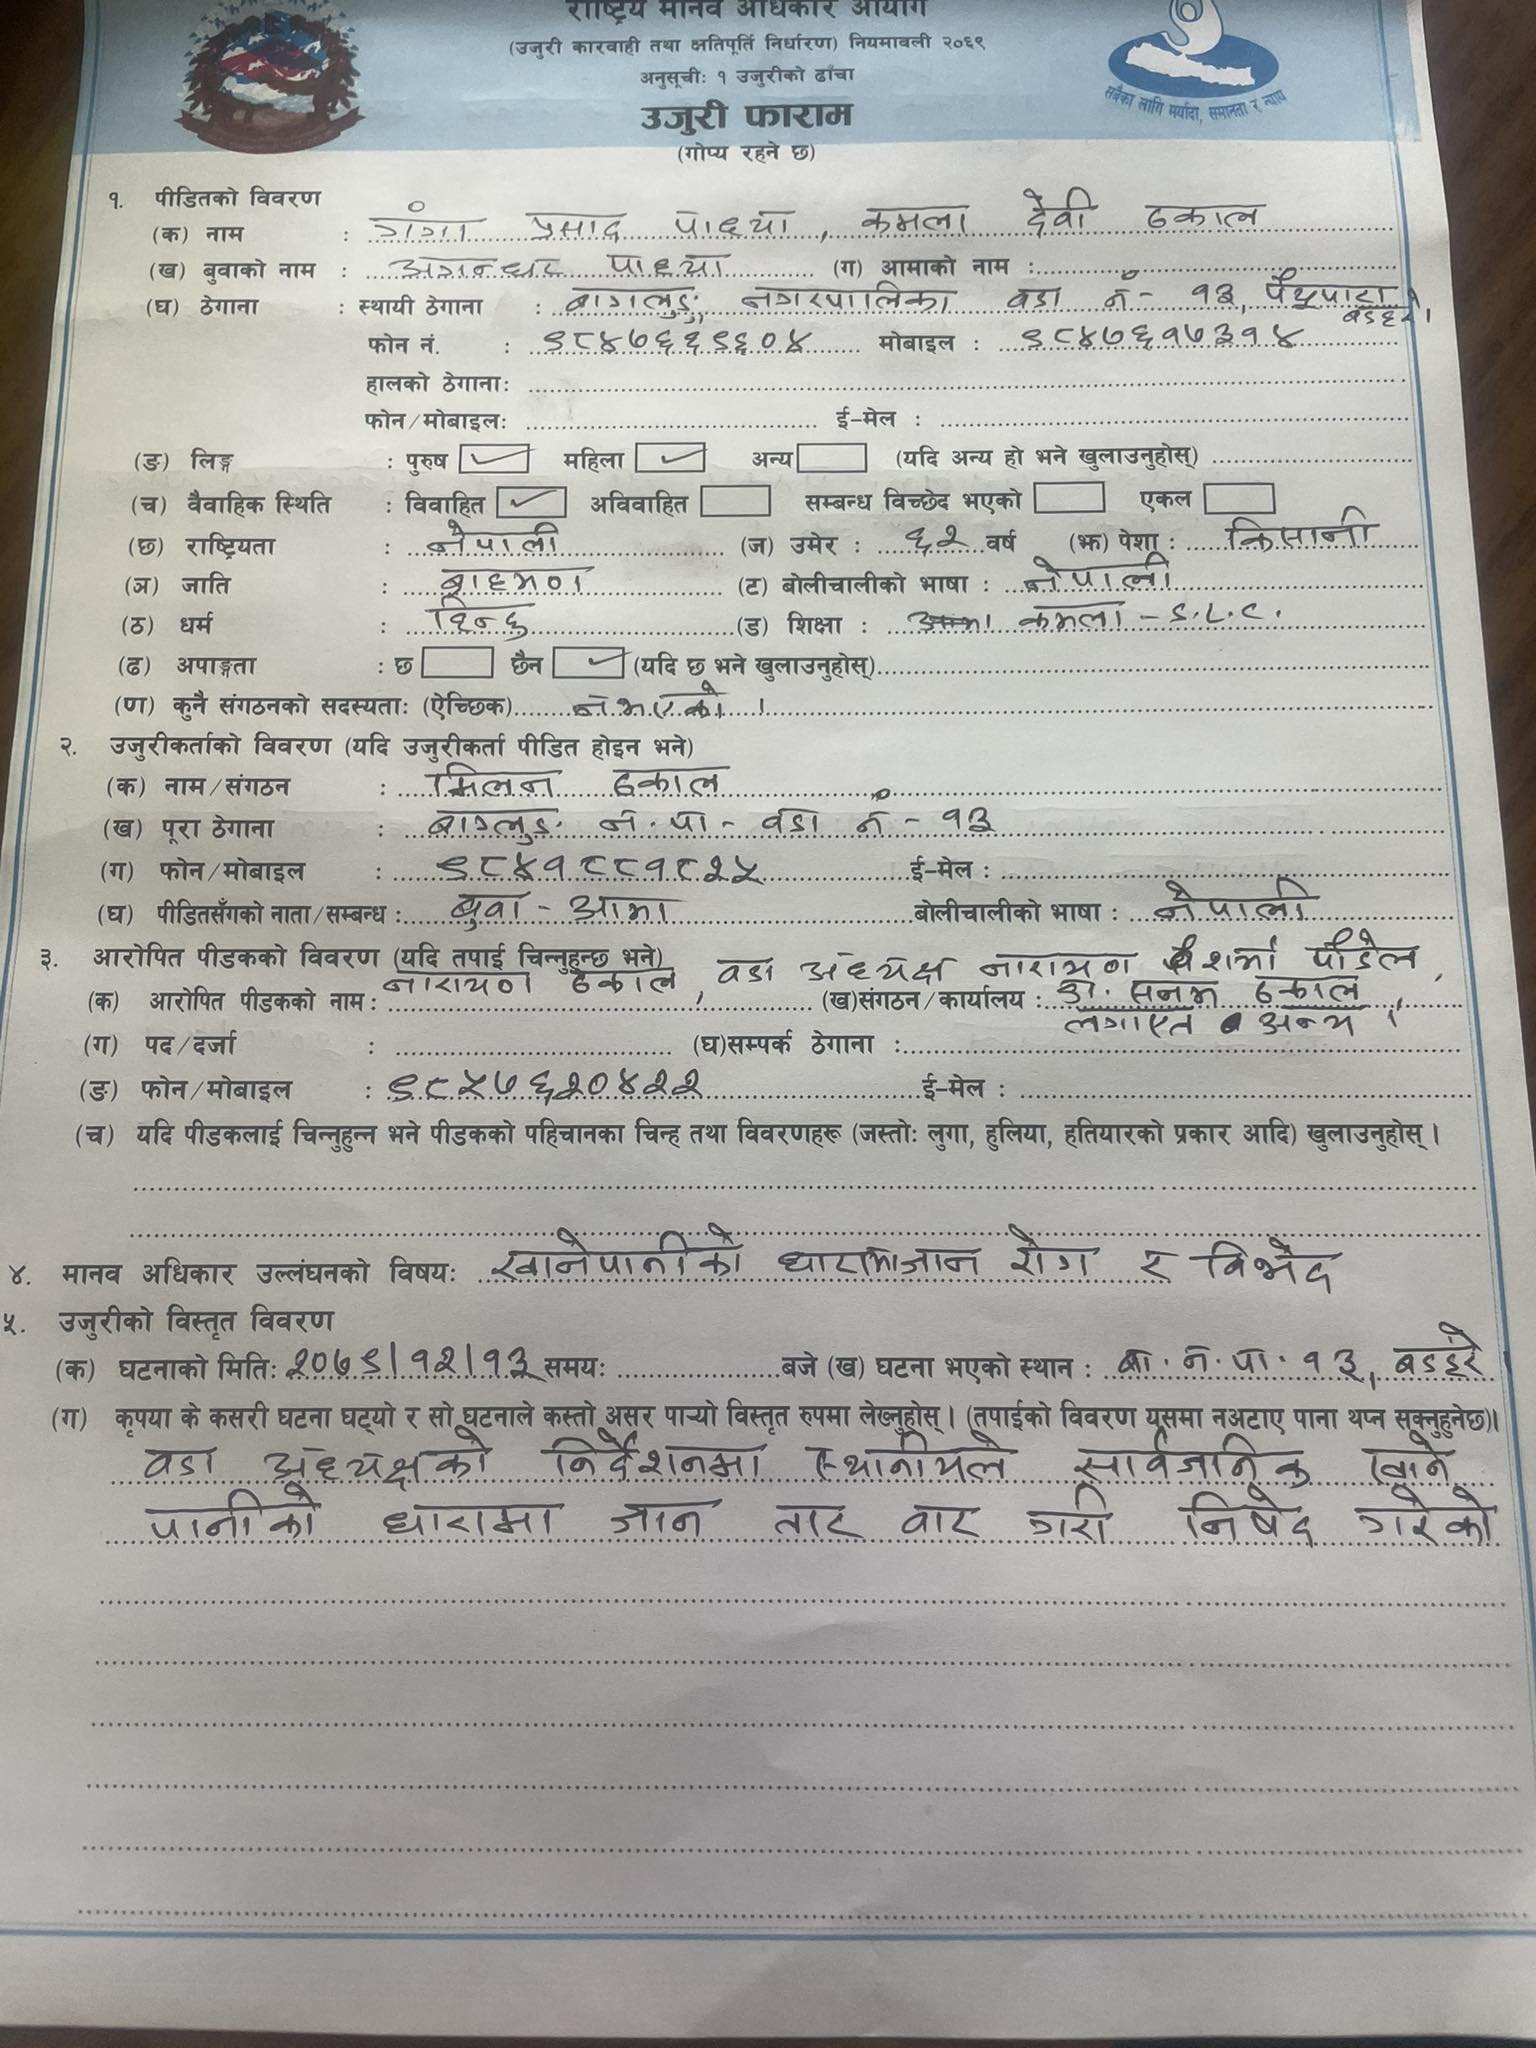 राष्ट्रिय मानव अधिकार आयोग
(उजुरी कारवाही तथा क्षतिपूर्ति निर्धारण) नियमावली २०६९
अनुसूची: १ उजुरीको ढाँचा
उजुरी फाराम
(गोप्य रहने छ)
सबैका लागि मर्यादा, समानता र न्याय
१. पीडितको विवरण
(क) नाम : गंगा प्रसाद पाध्या, कमला देवी ढकाल
(ख) बुवाको नाम : पाध्या (ग) आमाको नाम :
(घ) ठेगाना : स्थायी ठेगाना : बागलुङ नगरपालिका वडा नं - १३,
फोन नं. : मोबाइल : ९८४७६१७३१४
हालको ठेगाना:
फोन/मोबाइल: ई-मेल :
(ङ) लिङ्ग : पुरुष महिला अन्य (यदि अन्य हो भने खुलाउनुहोस्)
(च) वैवाहिक स्थिति : विवाहित अविवाहित सम्बन्ध विच्छेद भएको एकल
(छ) राष्ट्रियता : नेपाली (ज) उमेर : ६२ वर्ष (झ) पेशा : किसानी
(ञ) जाति : ब्राह्मण (ट) बोलीचालीको भाषा : नेपाली
(ठ) धर्म : हिन्दु (ड) शिक्षा : कमला - S.L.C.
(ढ) अपाङ्गता : छ छैन (यदि छ भने खुलाउनुहोस्)
(ण) कुनै संगठनको सदस्यता: (ऐच्छिक) नभएको।
२. उजुरीकर्ताको विवरण (यदि उजुरीकर्ता पीडित होइन भने)
(क) नाम/संगठन : मिलन ढकाल
(ख) पूरा ठेगाना : बागलुङ न.पा - वडा नं - १३
(ग) फोन/मोबाइल : ९८४१८८१८२५ ई-मेल :
(घ) पीडितसँगको नाता/सम्बन्ध : बुवा - आमा बोलीचालीको भाषा : नेपाली
३. आरोपित पीडकको विवरण (यदि तपाई चिन्नुहुन्छ भने)
(क) आरोपित पीडकको नाम : नारायण ढकाल, वडा अध्यक्ष नारायण शर्मा पौडेल,
(ख)संगठन/कार्यालय : सनम ढकाल,
लगाएत अन्य।
(ग) पद/दर्जा : (घ)सम्पर्क ठेगाना :
(ङ) फोन/मोबाइल : ९८५७६२०४२२ ई-मेल :
(च) यदि पीडकलाई चिन्नुहुन्न भने पीडकको पहिचानका चिन्ह तथा विवरणहरू (जस्तो: लुगा, हुलिया, हतियारको प्रकार आदि) खुलाउनुहोस्।
४. मानव अधिकार उल्लंघनको विषय: खानेपानीको धारामाजान रोग र विभेद
५. उजुरीको विस्तृत विवरण
(क) घटनाको मिति: २०७९/१२/१३ समय: बजे (ख) घटना भएको स्थान : बा.न.पा.१३,
(ग) कृपया के कसरी घटना घट्यो र सो घटनाले कस्तो असर पार्‍यो विस्तृत रुपमा लेख्नुहोस्। (तपाईको विवरण यसमा नअटाए पाना थप्न सक्नुहुनेछ)।
वडा अध्यक्षको निर्देशनमा स्थानीयले सार्वजनिक खाने
पानीको धारामा जान तार वार गरी निषेद गरेको